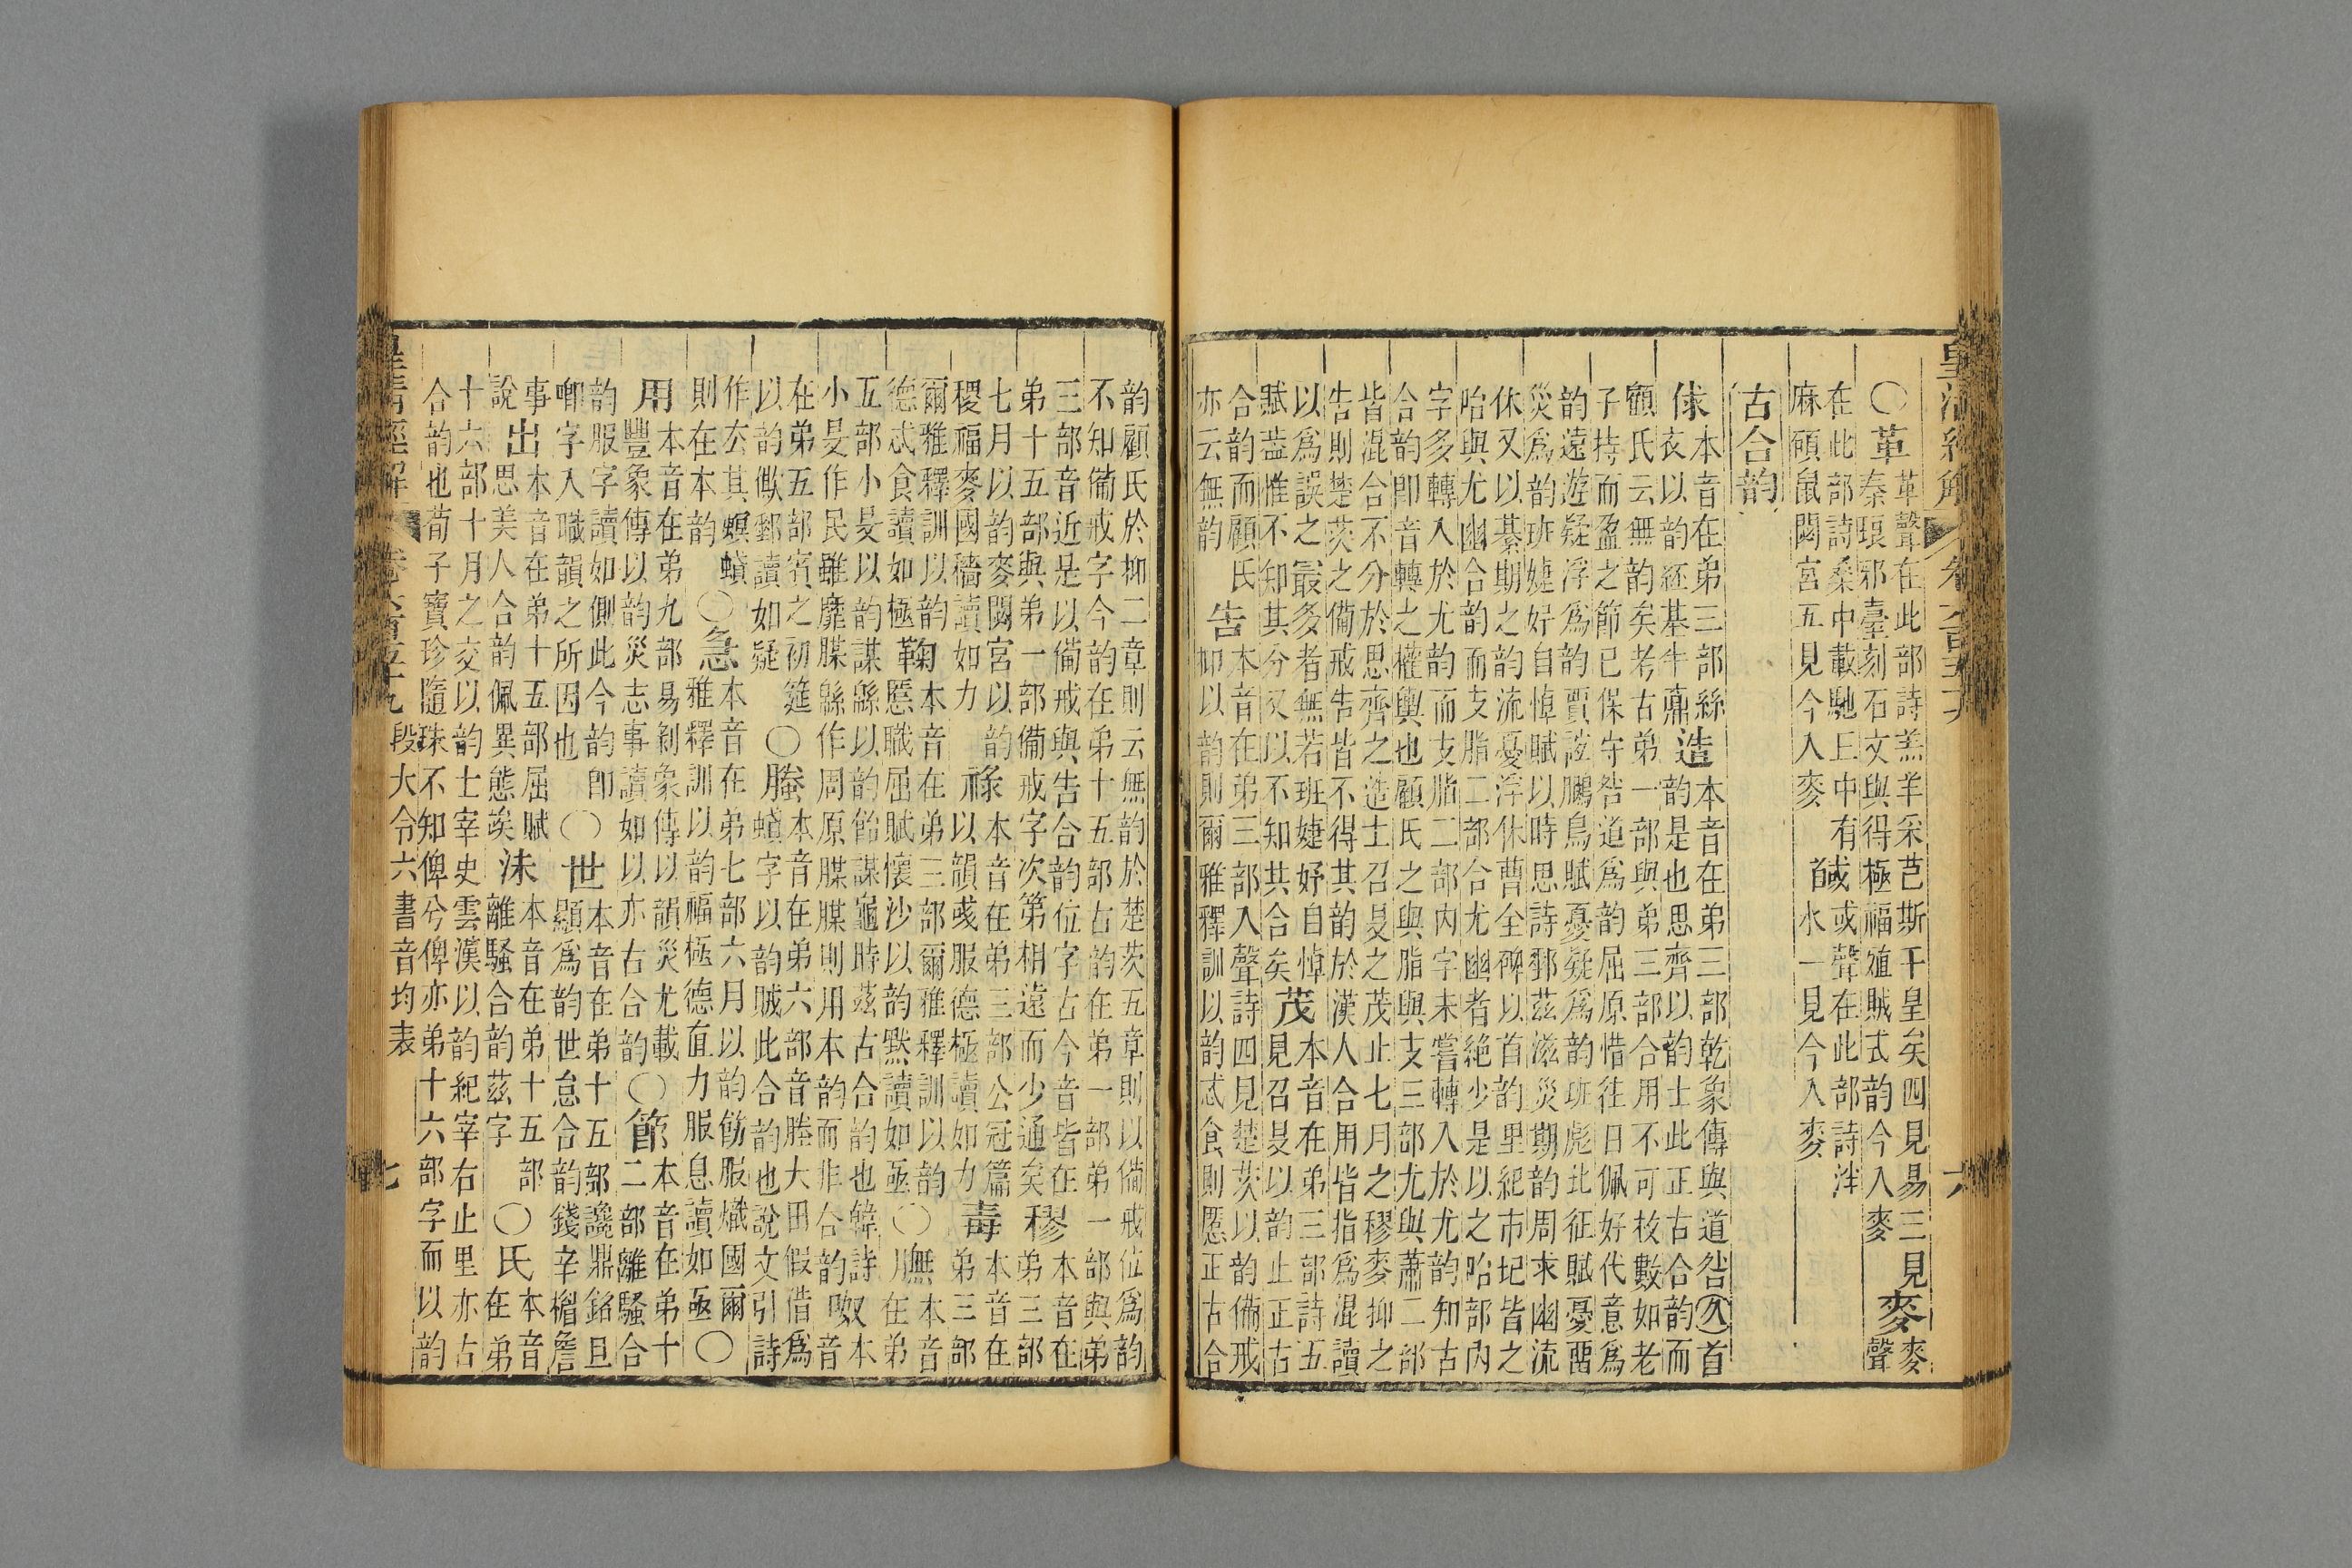 皇清經解
六
○革
革聲在此部詩羔羊采芑斯干皇矣四見易三見
秦琅邪臺刻石文與得極福殖賊式韵今入麥
麥
麥聲
在此部詩桑中載馳丘中有
麻碩鼠閟宮五見今入麥
馘
或聲在此部詩泮
水一見今入麥
古合韵
俅
本音在弟三部絲
衣以韵紑基牛鼐
造
本音在弟三部乾象傳與道咎久首
韵是也思齊以韵士此正古合韵而
顧氏云無韵矣考古弟一部與弟三部合用不可枚數如老
子持而盈之節已保守咎道爲韵屈原惜往日佩好代意爲
韵遠遊疑浮爲韵賈誼鵩鳥賦憂疑爲韵班彪北征賦憂
災爲韵班婕妤自悼賦以時思詩郵茲滋災期韵周求幽流
休又以綦期之韵流憂浮休曹全碑以首韵里紀市圮皆之
咍與尤幽合韵而支脂二部合尤幽者絶少是以之咍部內
字多轉入於尤韵而支脂二部內字未嘗轉入於尤韵知古
合韵卽音轉之權輿也顧氏之與脂與支三部尤與蕭二部
皆混合不分於思齊之造士召旻之茂止七月之穋麥抑之
告則楚茨之備戒告皆不得其韵於漢人合用皆指爲混讀
以爲誤之最多者無若班婕妤自悼
賦葢惟不知其分又以不知其合矣
茂
本音在弟三部詩五
見召旻以韵止正古
合韵而顧氏
亦云無韵
告
本音在弟三部入聲詩四見楚茨以韵備戒
抑以韵則爾雅釋訓以韵忒食則慝正古合
韵顧氏於抑二章則云無韵於楚茨五章則以備戒位爲韵
不知備戒字今韵在弟十五部古韵在弟一部弟一部與弟
三部音近是以備戒與告合韵位字古今音皆在
弟十五部與弟一部備戒字次第相遠而少通矣
穋
本音在
弟三部
七月以韵麥閟宮以韵
稷福麥國穡讀如力
祿
本音在弟三部公冠篇
以韻彧服德極讀如力
毒
本音在
弟三部
爾雅釋訓以韵
德忒食讀如極
鞠
本音在弟三部爾雅釋訓以韵
慝職屈賦懷沙以韵默讀如亟
○膴
本音
在弟
五部小旻以韵謀緜以韵飴謀龜時茲古合韵也韓詩
小旻作民雖靡腜緜作周原腜腜則用本韵而非合韵
呶
本
音
在弟五部賓之初筵
以韵僛郵讀如疑
○螣
本音在弟六部音塍大田假借爲
蟘字以韵賊此合韵也說文引詩
作去其螟蟘
則在本韵
○急
本音在弟七部六月以韵飭服熾國爾
雅釋訓以韵福極德直力服息讀如亟○
用
本音在弟九部易剝象傳以韻災尤載
豐象傳以韵災志事讀如以亦古合韵
○節
本音在弟十
二部離騷合
韵服字讀如側此今韵卽
喞字入職韻之所因也
○世
本音在弟十五部讒鼎銘旦
顯爲韵世怠合韵錢辛楣詹
事
說
出
本音在弟十五部屈賦
思美人合韵佩異態竢
沬
本音在弟十五部
離騷合韵茲字
○氏
本音
在弟
十六部十月之交以韵士宰史雲漢以韵紀宰右止里亦古
合韵也荀子寶珍隨珠不知俾兮俾亦弟十六部字而以韵
皇清經解
段大令六書音均表
七